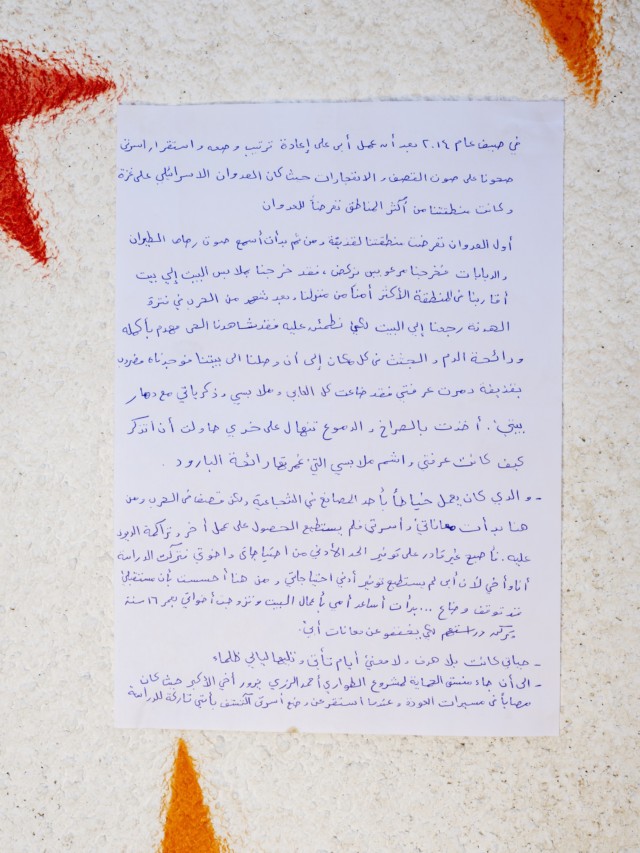 في صيف عام ٢٠١٤ بعد أن عمل أبي على إعادة ترتيب وضعه واستقرار أسرتي
صحونا على صوت القصف والانفجارات حيث كان العدوان الاسرائيلي على غزة
وكانت منطقتنا من أكثر المناطق تعرضاً للعدوان
أول العدوان تعرضت منطقتنا لقذيفة ومن ثم بدأت أسمع صوت رصاص الطيران
والدبابات فخرجنا مرعوبين نركض، فقد خرجنا بملابس البيت إلى بيت
أقاربنا في المنطقة الأكثر أمناً من منزلنا وبعد شهر من الحرب في فترة
الهدنة رجعنا إلى البيت لكي نطمئن عليه فقد شاهدنا الحي مهدم بأكمله
ورائحة الدم والجثث في كل مكان إلى أن وصلنا الى بيتنا فوجدناه مضروب
بقذيفة دمرت غرفتي فقد ضاعت كل العابي وملابسي وذكرياتي مع دمار
بيتي. أخذت بالصراخ والدموع تنهال على خدي حاولت أن أتذكر
كيف كانت غرفتي واشم ملابسي التي غمرتها رائحة البارود.
- والدي كان يعمل خياطاً بأحد المصانع في الشجاعية ولكن قصف في الحرب ومن
هنا بدأت معاناتي وأسرتي فلم يستطيع الحصول على عمل أخر وتراكمة الديون
عليه. فأصبح غير قادر على توفير الحد الأدنى من احتياجاتي واخوتي فتركت الدراسة
أنا وأخي لأن أبي لم يستطيع توفير أدنى احتياجاتي ومن هنا أحسست بأن مستقبلي
قد توقف وضاع ... بدأت أساعد أمي بأعمال البيت وتزوجت أخواتي بعمر ١٦ سنة
تركت دراستهم لكي يخففو عن معانات أبي.
- حياتي كانت بلا هدف ولا معنى أيام تأتي وتليها ليالي ظلماء
- الى أن جاء منسق الحماية لمشروع الطوارئ أحمد الرزي بزور أخي الأكبر حيث كان
مصاباً في مسيرات العودة وعندما استفسر عن وضع أسرتي اكتشف بأنني تاركة للدراسة